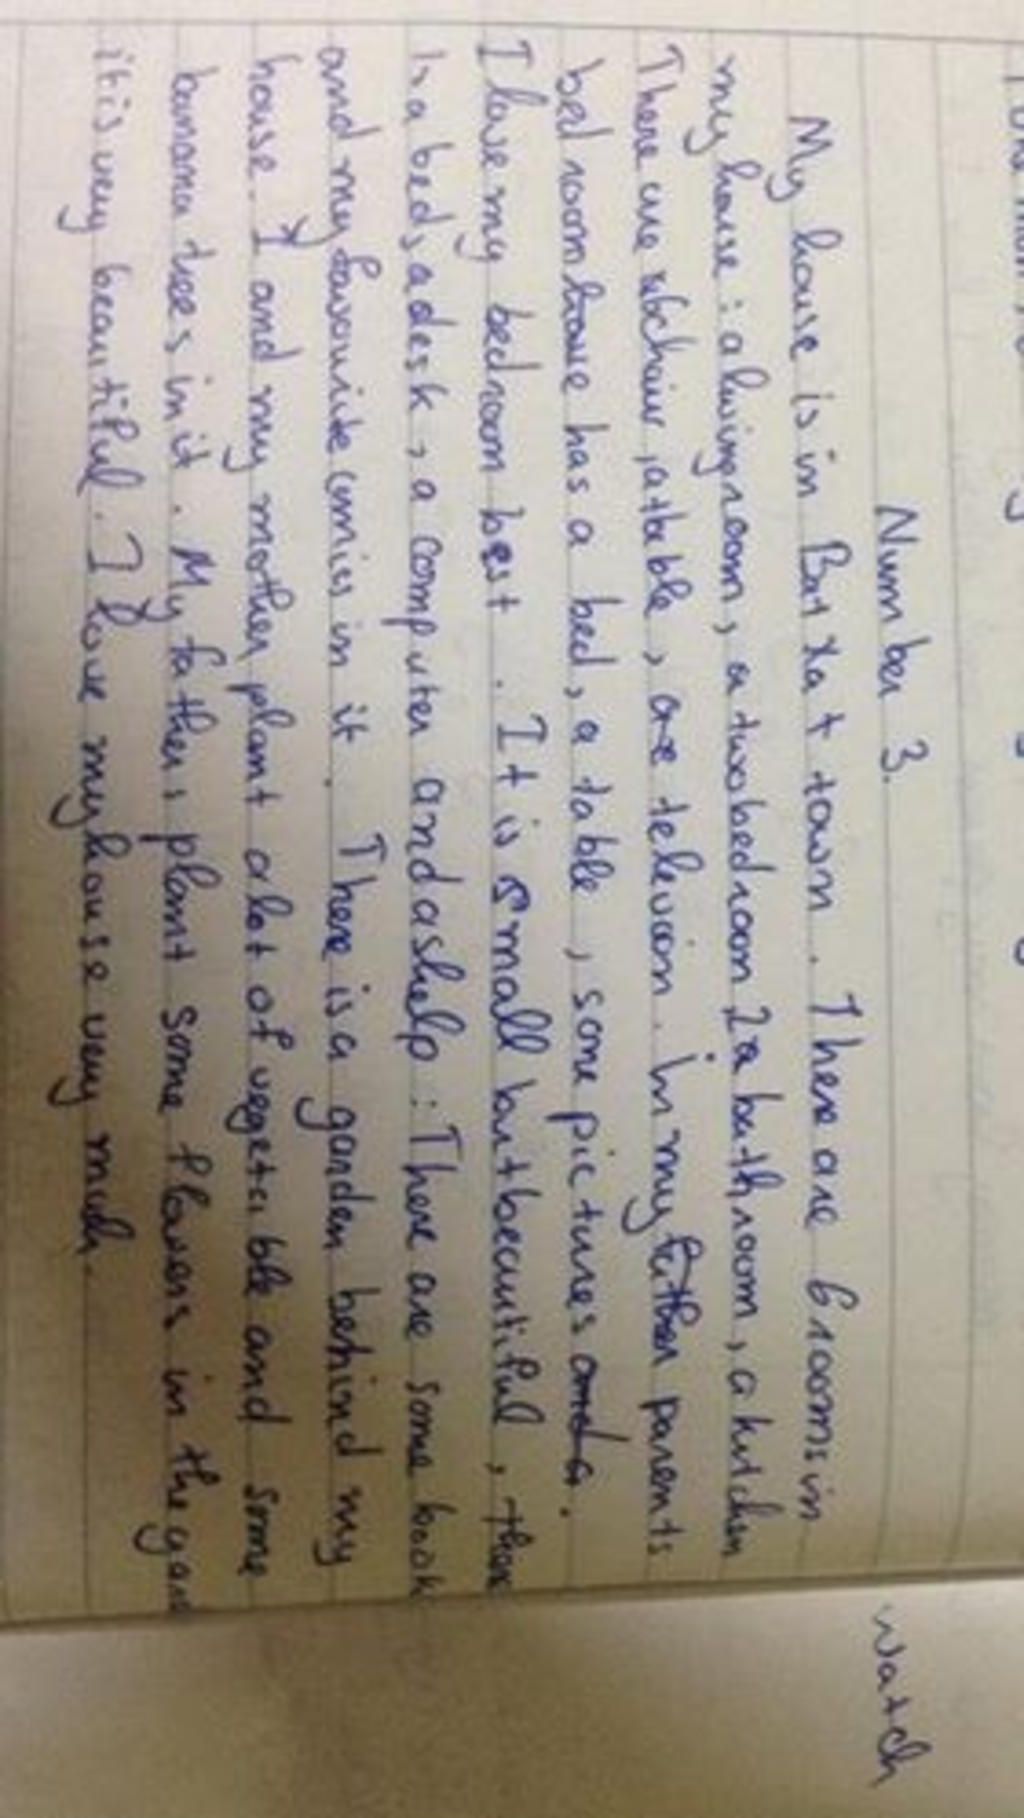 Number 3.
My house is in Bat Xat town. There are 6 rooms in
my house: a living room, a two bedroom 2 a bathroom, a kitchen
There are chair, a table, are television. In my father parents
bedroom have has a bed, a table, some pictures and a.
I love my bedroom best. It is small but beautiful, there
is a bed, a desk, a computer and a shelp: There are some book
and my favourite comics in it. There is a garden behind my
house. I and my mother plant a lot of vegetable and some
banana trees in it. My fathers plant some flowers in the gard
it is very beautiful. I love my house very much.
watch